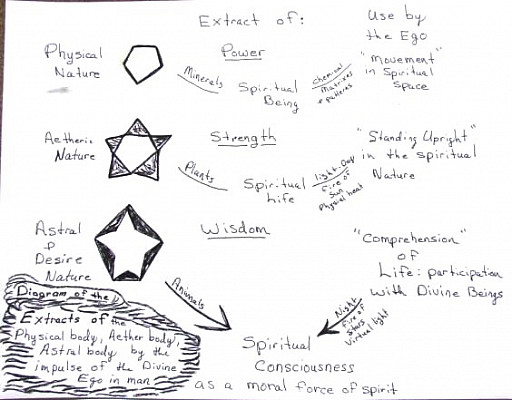 Extract of:
Use by
the Ego
Physical
Nature
Power
Minerals
Spiritual
Being
chemical
Matrixes
+ patterns
"Movement"
in Spiritual
Space
Aetheric
Nature
Strength
Plants
Spiritual
Life
light-Day
Fire of
Sun
Physical heat
"Standing Upright"
in the spiritual
Nature
Astral
&
Desire
Nature
Wisdom
Animals
"Comprehension"
of
Life: participation
with Divine Beings
Night
fire of
stars
Virtual light
Spiritual
Consciousness
as a moral force of spirit
Diagram of the
Extracts of the
Physical body, Aether body,
Astral body by the
impulse of the Divine
Ego in man